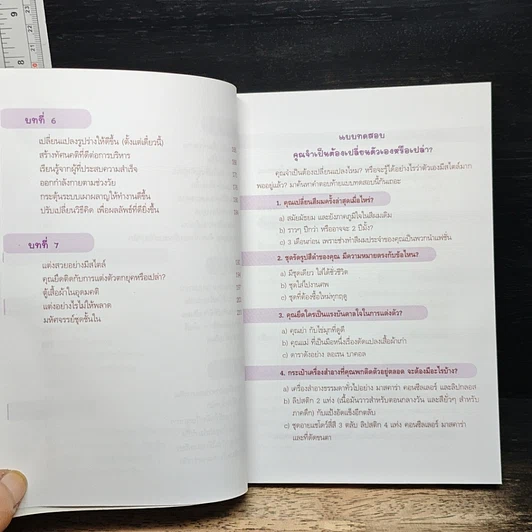 บทที่ 6
เปลี่ยนแปลงรูปร่างให้ดีขึ้น (ตั้งแต่เดี๋ยวนี้)
สร้างทัศนคติที่ดีต่อการบริหาร
เรียนรู้จากผู้ที่ประสบความสำเร็จ
ออกกำลังกายตามช่วงวัย
กระตุ้นระบบเผาผลาญให้ทำงานดีขึ้น
ปรับเปลี่ยนวิธีคิด เพื่อผลลัพธ์ที่ดียิ่งขึ้น
บทที่ 7
แต่งสวยอย่างมีสไตล์
คุณยึดติดกับการแต่งตัวตกยุคหรือเปล่า?
ตู้เสื้อผ้าในอุดมคติ
แต่งอย่างไรไม่ให้พลาด
มหัศจรรย์ชุดชั้นใน
แบบทดสอบ
คุณจำเป็นต้องเปลี่ยนตัวเองหรือเปล่า?
คุณจำเป็นต้องเปลี่ยนแปลงไหม? หรือจะรู้ได้อย่างไรว่าตัวเองมีสไตล์มาก
พออยู่แล้ว? มาค้นหาคำตอบท้ายแบบทดสอบนี้กันเถอะ
1. คุณเปลี่ยนสีผมครั้งล่าสุดเมื่อไหร่?
a) สมัยมัธยม และยังภาคภูมิใจในสีผมเดิม
b) ราวๆ ปีกว่า หรืออาจจะ 2 ปีมั้ง?
c) 3 เดือนก่อน เพราะช่างทำสีผมประจำของคุณเป็นพวกนำแฟชั่น
2. ชุดรัดรูปสีดำของคุณ มีความหมายตรงกับข้อไหน?
a) มีชุดเดียว ใส่ได้ชั่วชีวิต
b) ชุดใส่ไปงานศพ
c) ชุดที่ต้องซื้อใหม่ทุกฤดู
3. คุณยึดใครเป็นแรงบันดาลใจในการแต่งตัว?
a) คุณย่า กับไข่มุกที่ดูดี
b) คุณแม่ ที่เป็นมือหนึ่งเรื่องดัดแปลงเสื้อผ้าเก่า
c) ดาราดังอย่าง ลอเรน บาคอล
4. กระเป๋าเครื่องสำอางที่คุณพกติดตัวอยู่ตลอด จะต้องมีอะไรบ้าง?
a) เครื่องสำอางธรรมดาทั่วไปอย่าง มาสคาร่า คอนซีลเลอร์ และลิปกลอส
b) ลิปสติก 2 แท่ง (เนื้อมันวาวสำหรับตอนกลางวัน และสีชัวๆ สำหรับ
ภาคดึก) กับแป้งอัดแข็งอีกตลับ
c) ชุดอายแชโดว์สีสี 3 ตลับ ลิปสติก 4 แท่ง คอนซีลเลอร์ มาสคาร่า
และที่ดัดขนตา